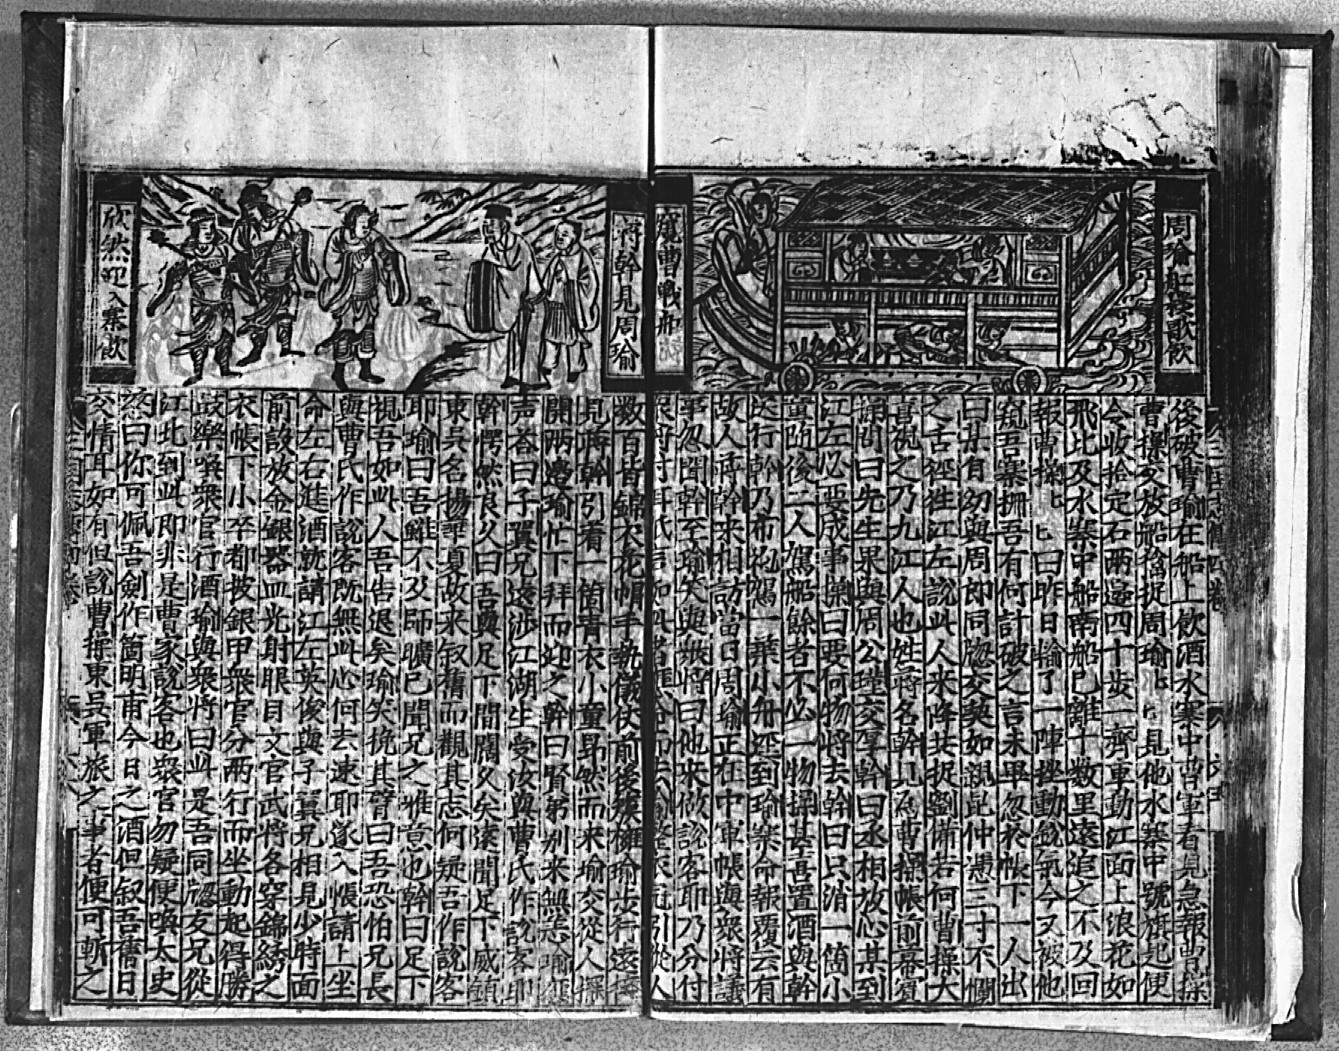 周瑜舡樓歌飲
窺曹戰船
後破曹瑜在船上飲酒水寨中曹軍看見急報曹操
曹操交放船捨捉周瑜匕見他水寨中號旗起便
令收拾定石兩邉四十歩一齊車動江面上浪花如
飛比及水寨中船南船已離十数里遠追之不及回
報曹操匕曰昨日輸了一陣挫動銳氣今又被他
窺吾寨栅吾有何計破之言未畢忽於帳下一人出
曰某有幼與周郎同牕交契如親昆仲憑三寸不爛
之舌徃江左說此人來降共捉劉備若何曹操大
喜視之乃九江人也姓蔣名幹見為曹操帳前幕賓
操問曰先生果與周公瑾交厚幹曰丞相放心某到
江左必要成事操曰要何物將去幹曰只消一箇小
童随後二人駕船餘者不必一物操甚喜置酒與幹
送行幹乃布袍駕一葉小舟逕到瑜寨命報覆云有
故人蔣幹來相訪當日周瑜正在中軍帳與衆將議
事忽聞幹至瑜笑與衆將曰他來做說客耶乃分付
蔣幹見周瑜
欣然迎入寨飲
数百皆錦衣花帽手執儀仗前後簇擁瑜步行遠接
見蔣幹引着一箇青衣小童昻然而來瑜交從人擺
開兩邉瑜忙下拜而迎之幹曰賢弟别來無恙瑜
声荅曰子翼兄遠涉江湖生受汝與曹氏作說客耶
幹愕然良久曰吾與足下間闊久矣遠聞足下威鎮
東吳名揚華夏故來叙舊而觀其志何疑吾作說客
耶瑜曰吾雖不及师曠已聞兄之雅意也幹曰足下
視吾如此人吾告退矣瑜笑挽其臂曰吾恐怕兄長
與曹氏作說客既無此心何去速耶遂入帳請上坐
命左右進酒就請江左英俊與子翼兄相見少時面
前設放金銀器皿光射眼目文官武將各穿錦綉之
衣帳下小卒都披銀甲衆官分兩行而坐動起得勝
鼓樂喚衆官行酒瑜與衆將曰此是吾同牕友兄從
江北到此即非是曹家說客也衆官勿疑便喚太史
慈曰你可佩吾劍作箇明甫今日之酒但叙吾舊日
交情耳如有但說曹操東吳軍旅之事者便可斬之